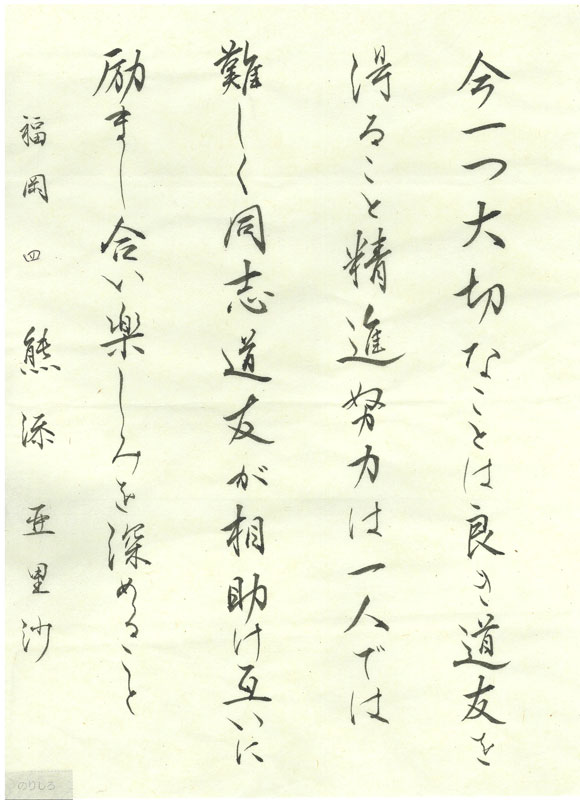 今一つ大切なことは良き道友を
得ること精進努力は一人では
難しく同志道友が相助け互いに
励まし合い楽しみを深めること
福岡 四 熊添亜里沙
のりしろ